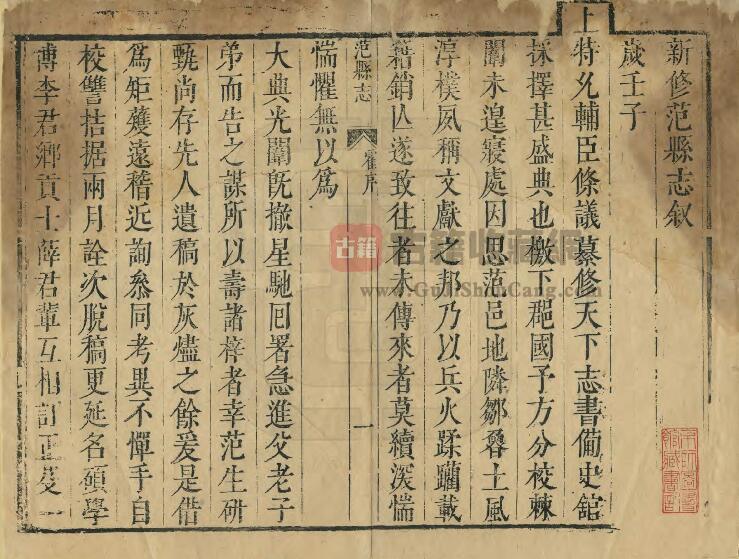 新修范縣志叙
歲壬子
上特允輔臣條議纂修天下志書備史舘
採擇甚盛典也檄下郡國予方分校棘
闈未遑寢處因思范邑地隣鄒魯土風
淳樸夙稱文獻之邦乃以兵火蹂躪載
籍銷亾遂致往者未傳來者莫續深惴
范縣志
霍序
一
惴懼無以爲
大典光闈旣撤星馳囘署急進父老子
弟而告之謀所以壽諸梓者幸范生研
甄尚存先人遺稿於灰燼之餘爰是借
爲矩矱遠稽近詢叅同考異不憚手自
校讐拮据兩月詮次脫稿更延名碩學
博李君鄉貢士薛君輩互相訂正爰一
古籍
古籍收藏網
www.GuJiShouCang.com